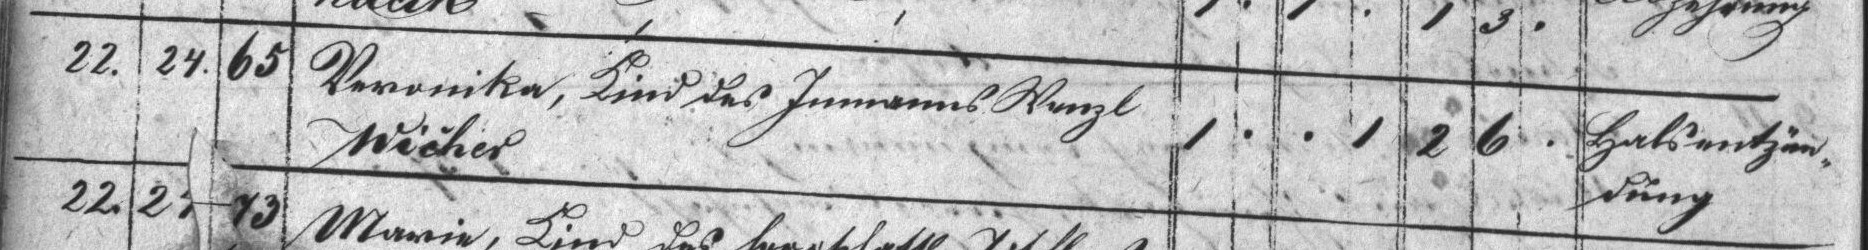 1 . 1 . 1 3 .
22. 24. 65 Veronika, Kind des Inmanns Wenzl
Wicher 1 . . 1 2 6 . Halsentzün-
dung
22. 73 Marie, Kind des